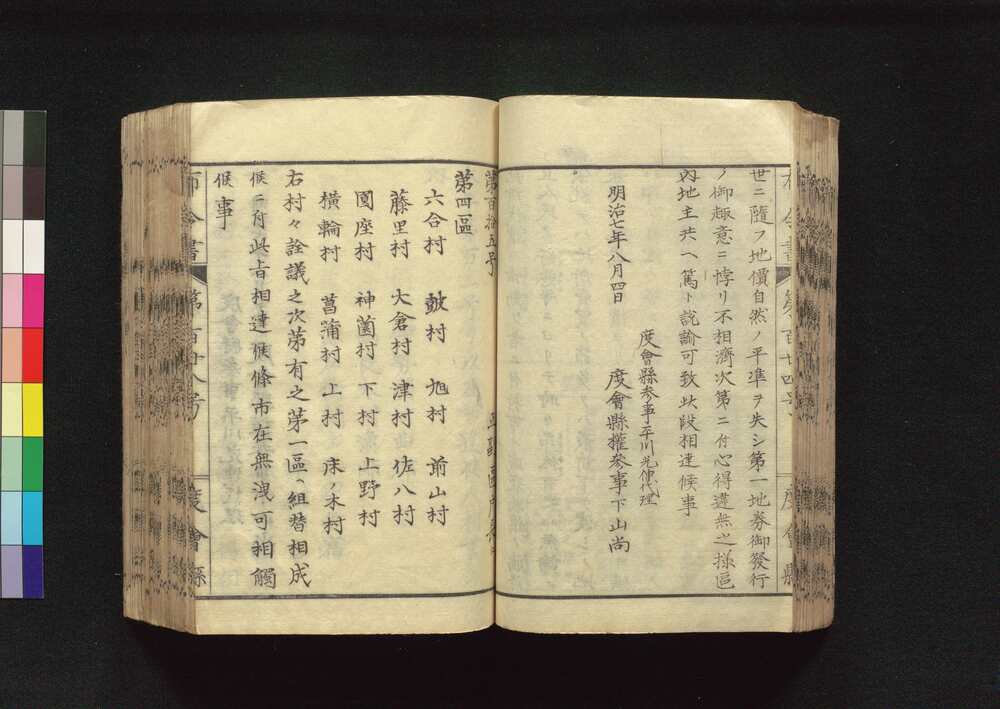 世ニ隨フ地價自然ノ平準ヲ失シ第一地券御發行
ノ御趣意ニ悖リ不相濟次第ニ付心得違無之様區
内地主共ヘ篤ト説諭可致此段相達候事
度會縣参事平川光伸代理
明治七年八月四日 度會縣權參事下山尚
第百拾五号
第四區
六合村 㿱村 旭村 前山村
藤里村 大倉村 津村 佐八村
圓座村 神薗村 下村 上野村
横輪村 菖蒲村 上村 床ノ木村
右村々詮議之次第有之第一區ヘ組替相成
候ニ付此旨相達候條市在無洩可相觸
候事
布令書 第百廿八号 度會縣